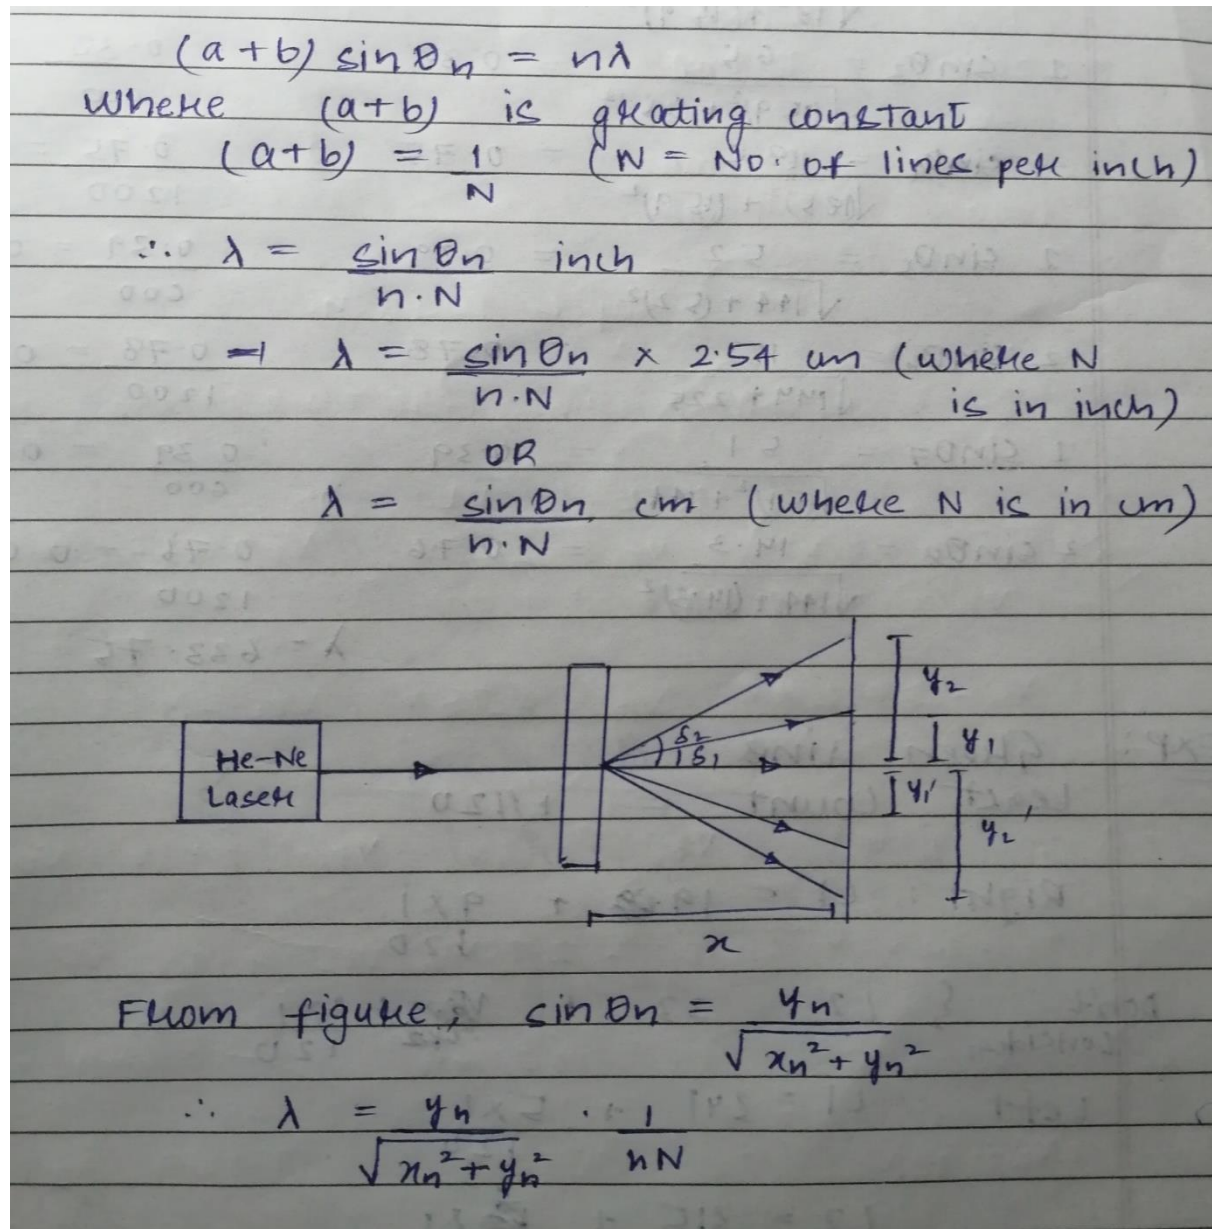 (a+b) sinθn = nλ
where (a+b) is grating constant
(a+b) = 1/N (N = No. of lines per inch)
∴ λ = sinθn/n·N inch
⇒ λ = sinθn/n·N × 2.54 cm (where N
is in inch)
OR
λ = sinθn/n·N cm (where N is in cm)
He-Ne
Laser
δ2
δ1
y2
y1
y1'
y2'
x
From figure, sinθn = yn/√xn²+yn²
∴ λ = yn/√xn²+yn² · 1/nN